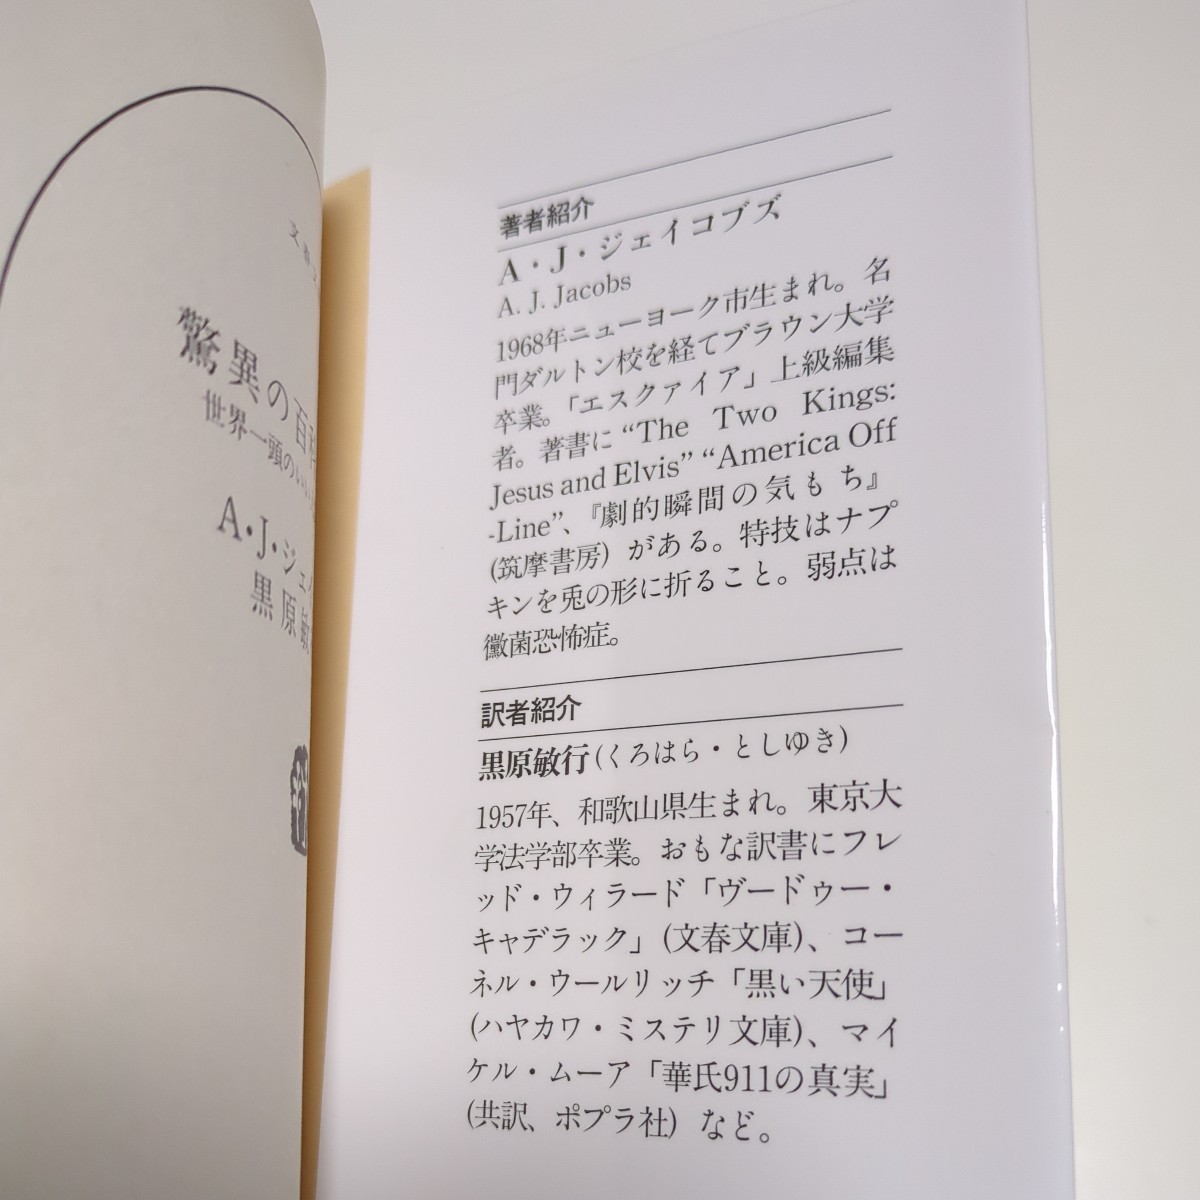 文春文
驚異の百科
世界一頭のいい
A・J・ジェイ
黒原敏
著者紹介
A・J・ジェイコブズ
A. J. Jacobs
1968年ニューヨーク市生まれ。名
門ダルトン校を経てブラウン大学
卒業。「エスクァイア」上級編集
者。著書に“The Two Kings:
Jesus and Elvis” “America Off
-Line”、『劇的瞬間の気もち』
(筑摩書房) がある。特技はナプ
キンを兎の形に折ること。弱点は
黴菌恐怖症。
訳者紹介
黒原敏行(くろはら・としゆき)
1957年、和歌山県生まれ。東京大
学法学部卒業。おもな訳書にフレ
ッド・ウィラード「ヴードゥー・
キャデラック」(文春文庫)、コー
ネル・ウールリッチ「黒い天使」
(ハヤカワ・ミステリ文庫)、マイ
ケル・ムーア「華氏911の真実」
(共訳、ポプラ社) など。